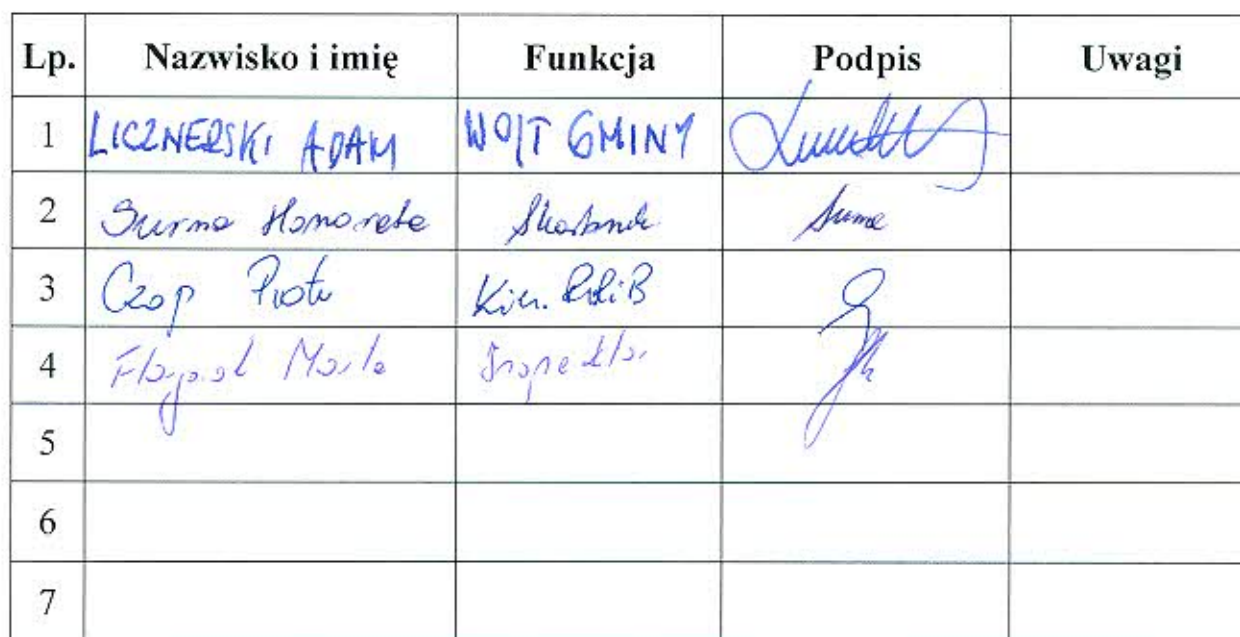 Lp. Nazwisko i imię Funkcja Podpis Uwagi
1 LICZNERSKI ADAM WÓJT GMINY
2 Surma Honorata Skarbnik Surma
3 Czop Piotr Kier.
4 Marta Inspektor
5
6
7